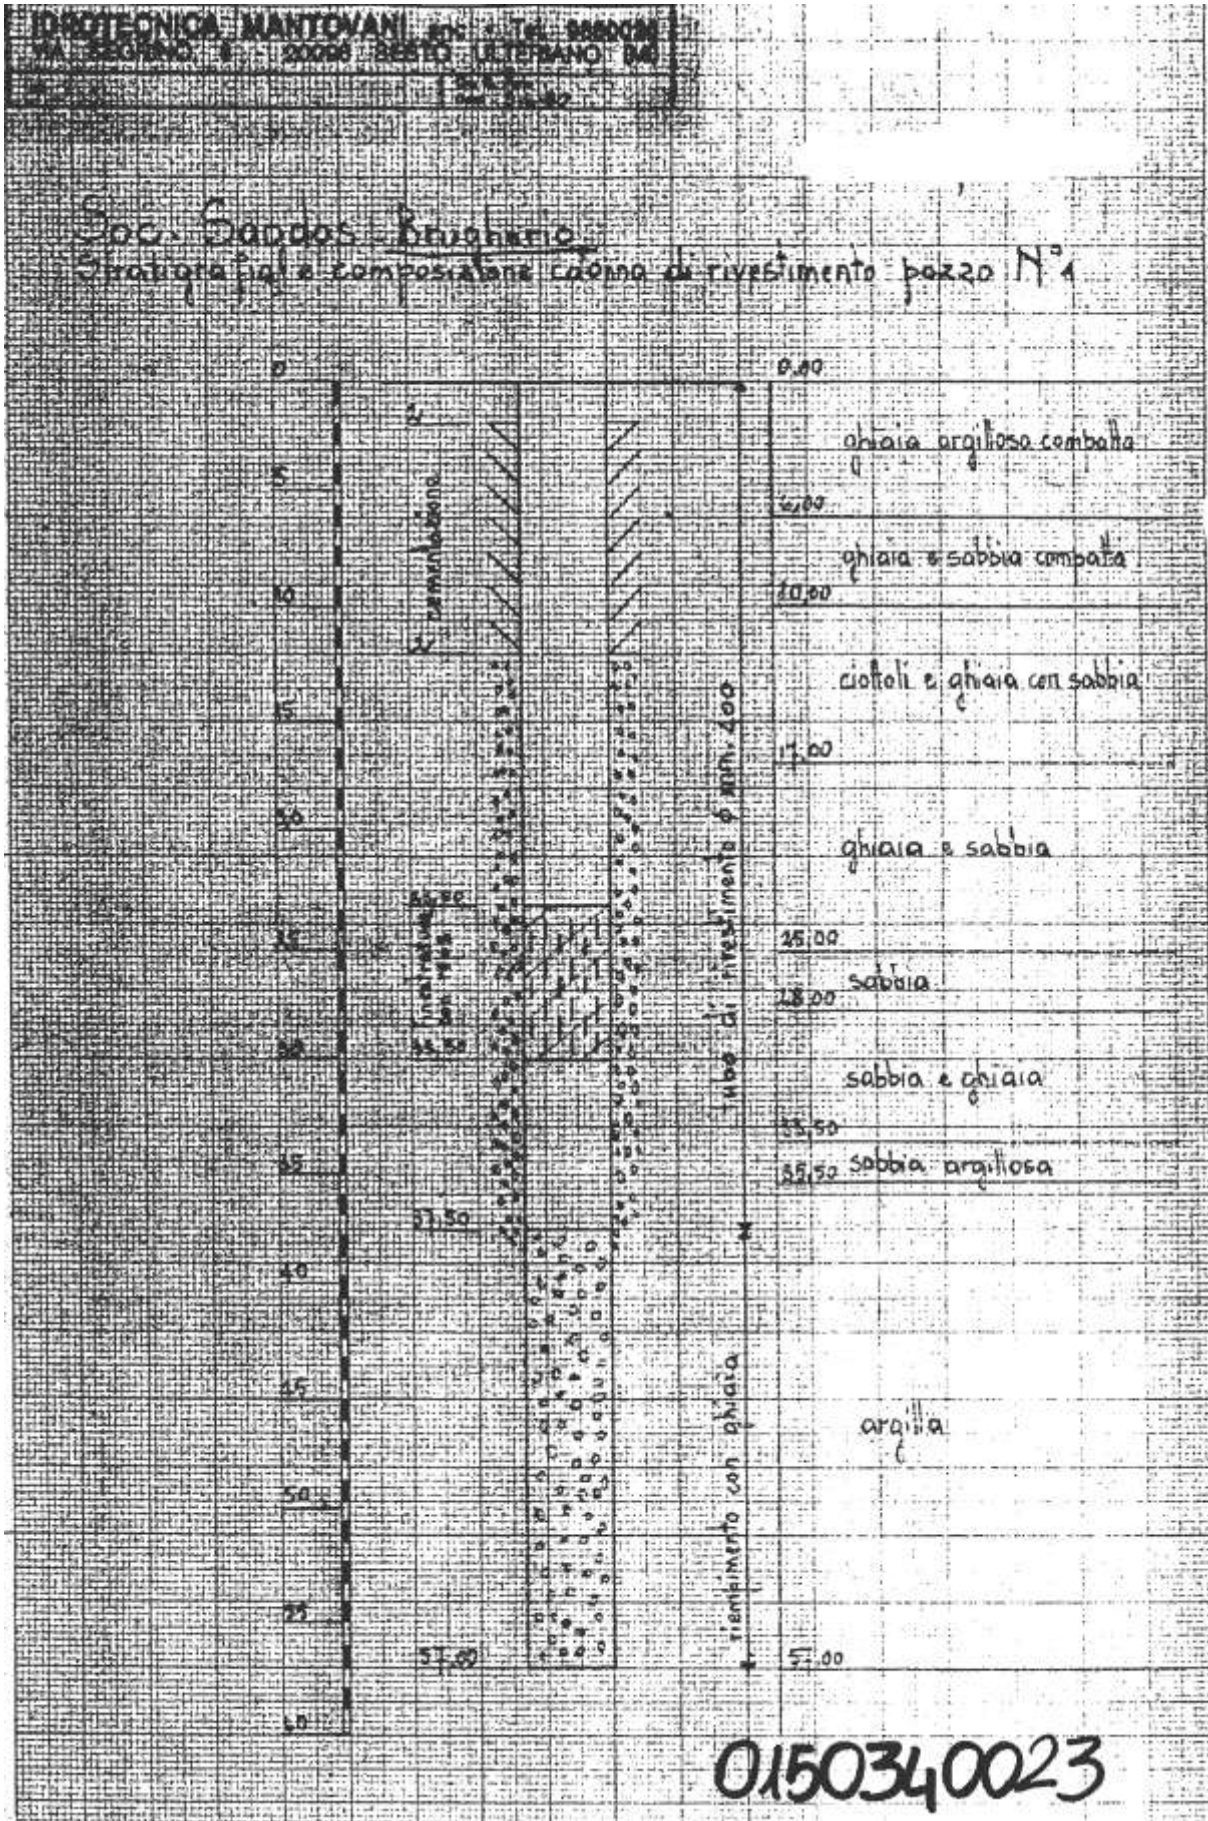 IDROTECNICA MANTOVANI snc - Tel. 9880028
VIA SEGRINO, 6 - 20098 SESTO ULTERIANO (MI)
Soc. Sandos Brugherio
Stratigrafia e composizione colonna di rivestimento pozzo N°1
0
5
10
15
20
25
30
35
40
45
50
55
60
2
cementazione
finestratura
37,50
57,00
tubo di rivestimento ø mm. 200
riempimento con ghiaia
0,00
ghiaia argillosa compatta
6,00
ghiaia e sabbia compatta
10,00
ciottoli e ghiaia con sabbia
17,00
ghiaia e sabbia
25,00
sabbia
28,00
sabbia e ghiaia
33,50
sabbia argillosa
35,50
argilla
57,00
0150340023